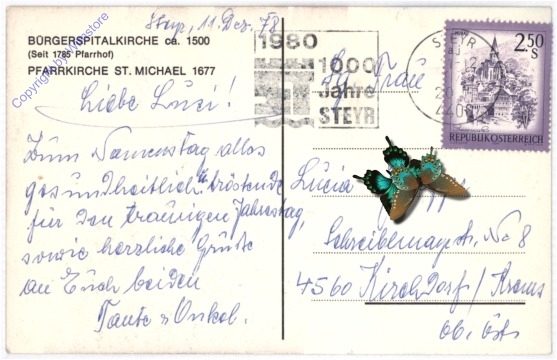 Steyr, 11. Dez. 78
BÜRGERSPITALKIRCHE ca. 1500
(Seit 1785 Pfarrhof)
PFARRKIRCHE ST. MICHAEL 1677
Copyright by Wildstore
Liebe Luci!
Zum Namenstag alles
gesundheitlich u. tröstende
für den traurigen Jahrestag,
sowie herzliche Grüße
an Euch beiden
Tante u. Onkel.
1980
1000
Jahre
STEYR
STEYR
2.50
S
REPUBLIK ÖSTERREICH
Frau
Lucia
Schreibermayrstr. No 8
4560 Kirchdorf / Krems
Ob. Öst.